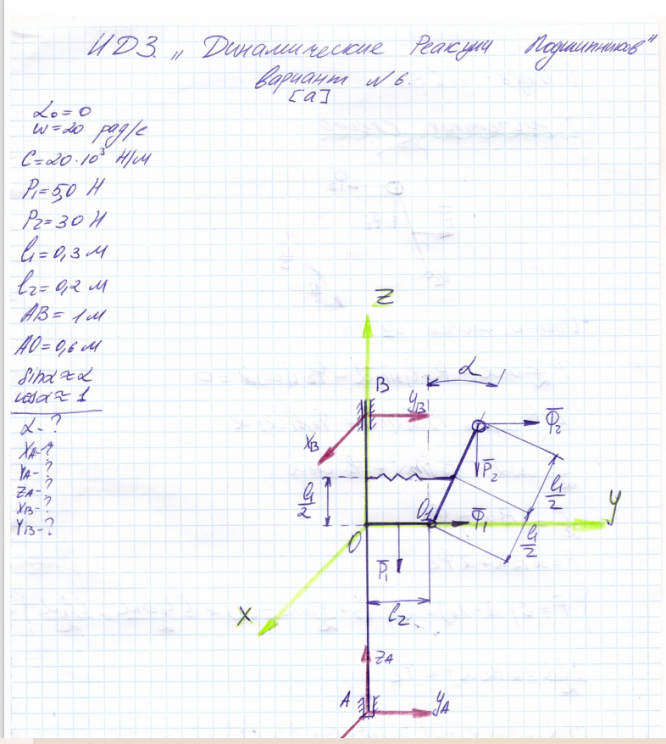 ИДЗ „Динамические Реакции Подшипников"
вариант №6.
[a]
α₀=0
ω=20 рад/с
C=20·10³ Н/м
P₁=5,0 Н
P₂=30 Н
l₁=0,3 м
l₂=0,2 м
AB=1м
AO=0,6м
sinα≈α
cosα≈1
α-?
XA-?
YA-?
ZA-?
XB-?
YB-?
Z
B
α
YB
XB
Φ̅₂
P̅₂
l₁/2
l₁/2
O₁
Φ̅₁
Y
l₁/2
O
P̅₁
X
l₂
ZA
A
YA